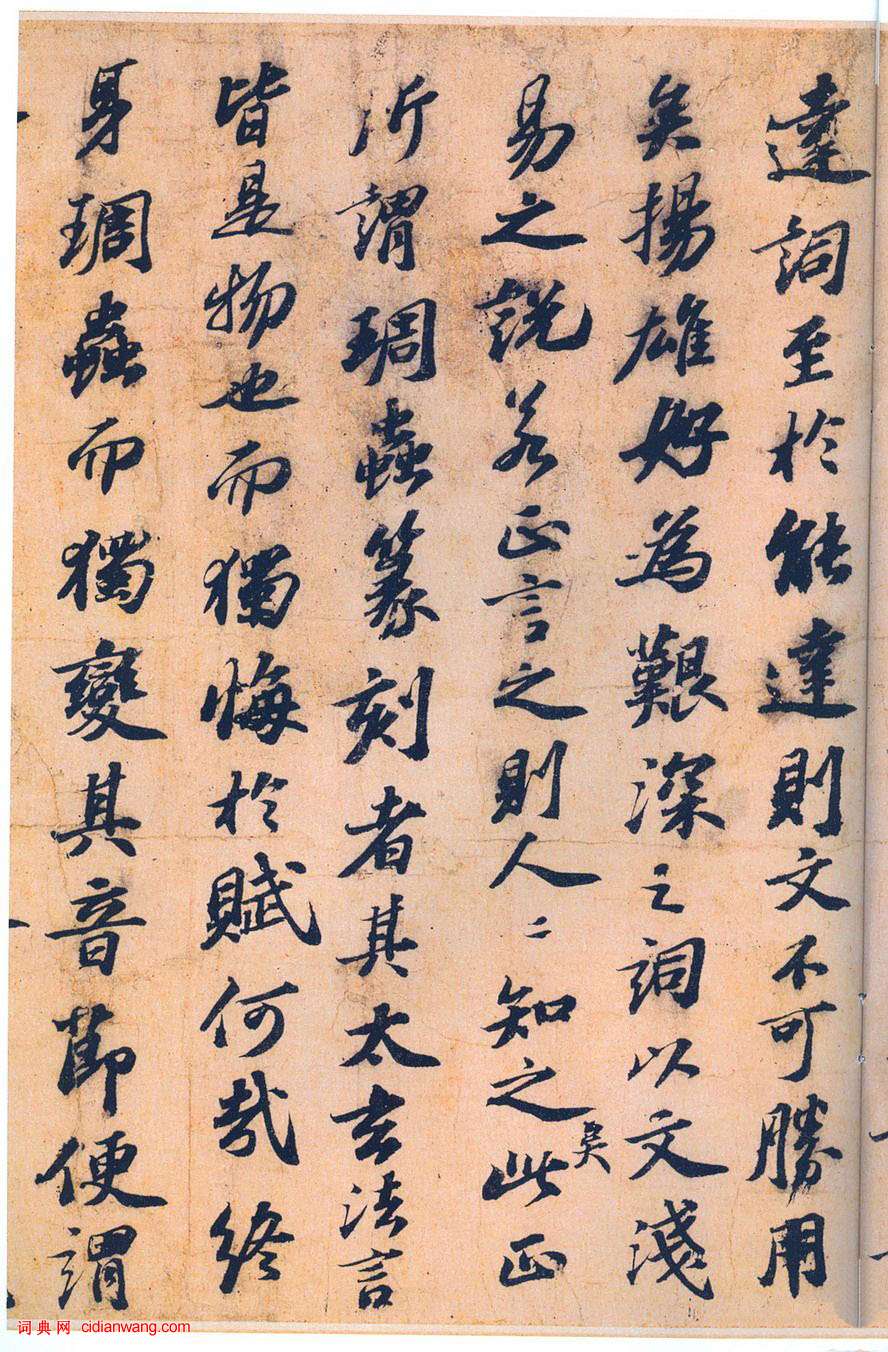 達詞至於能達則文不可勝用
矣揚雄好為艱深之詞以文淺
易之說若正言之則人〻知之矣此正
所謂琱蟲篆刻者其太玄法言
皆是物也而獨悔於賦何哉終
身琱蟲而獨變其音節便謂
词典网 cidianwang.com